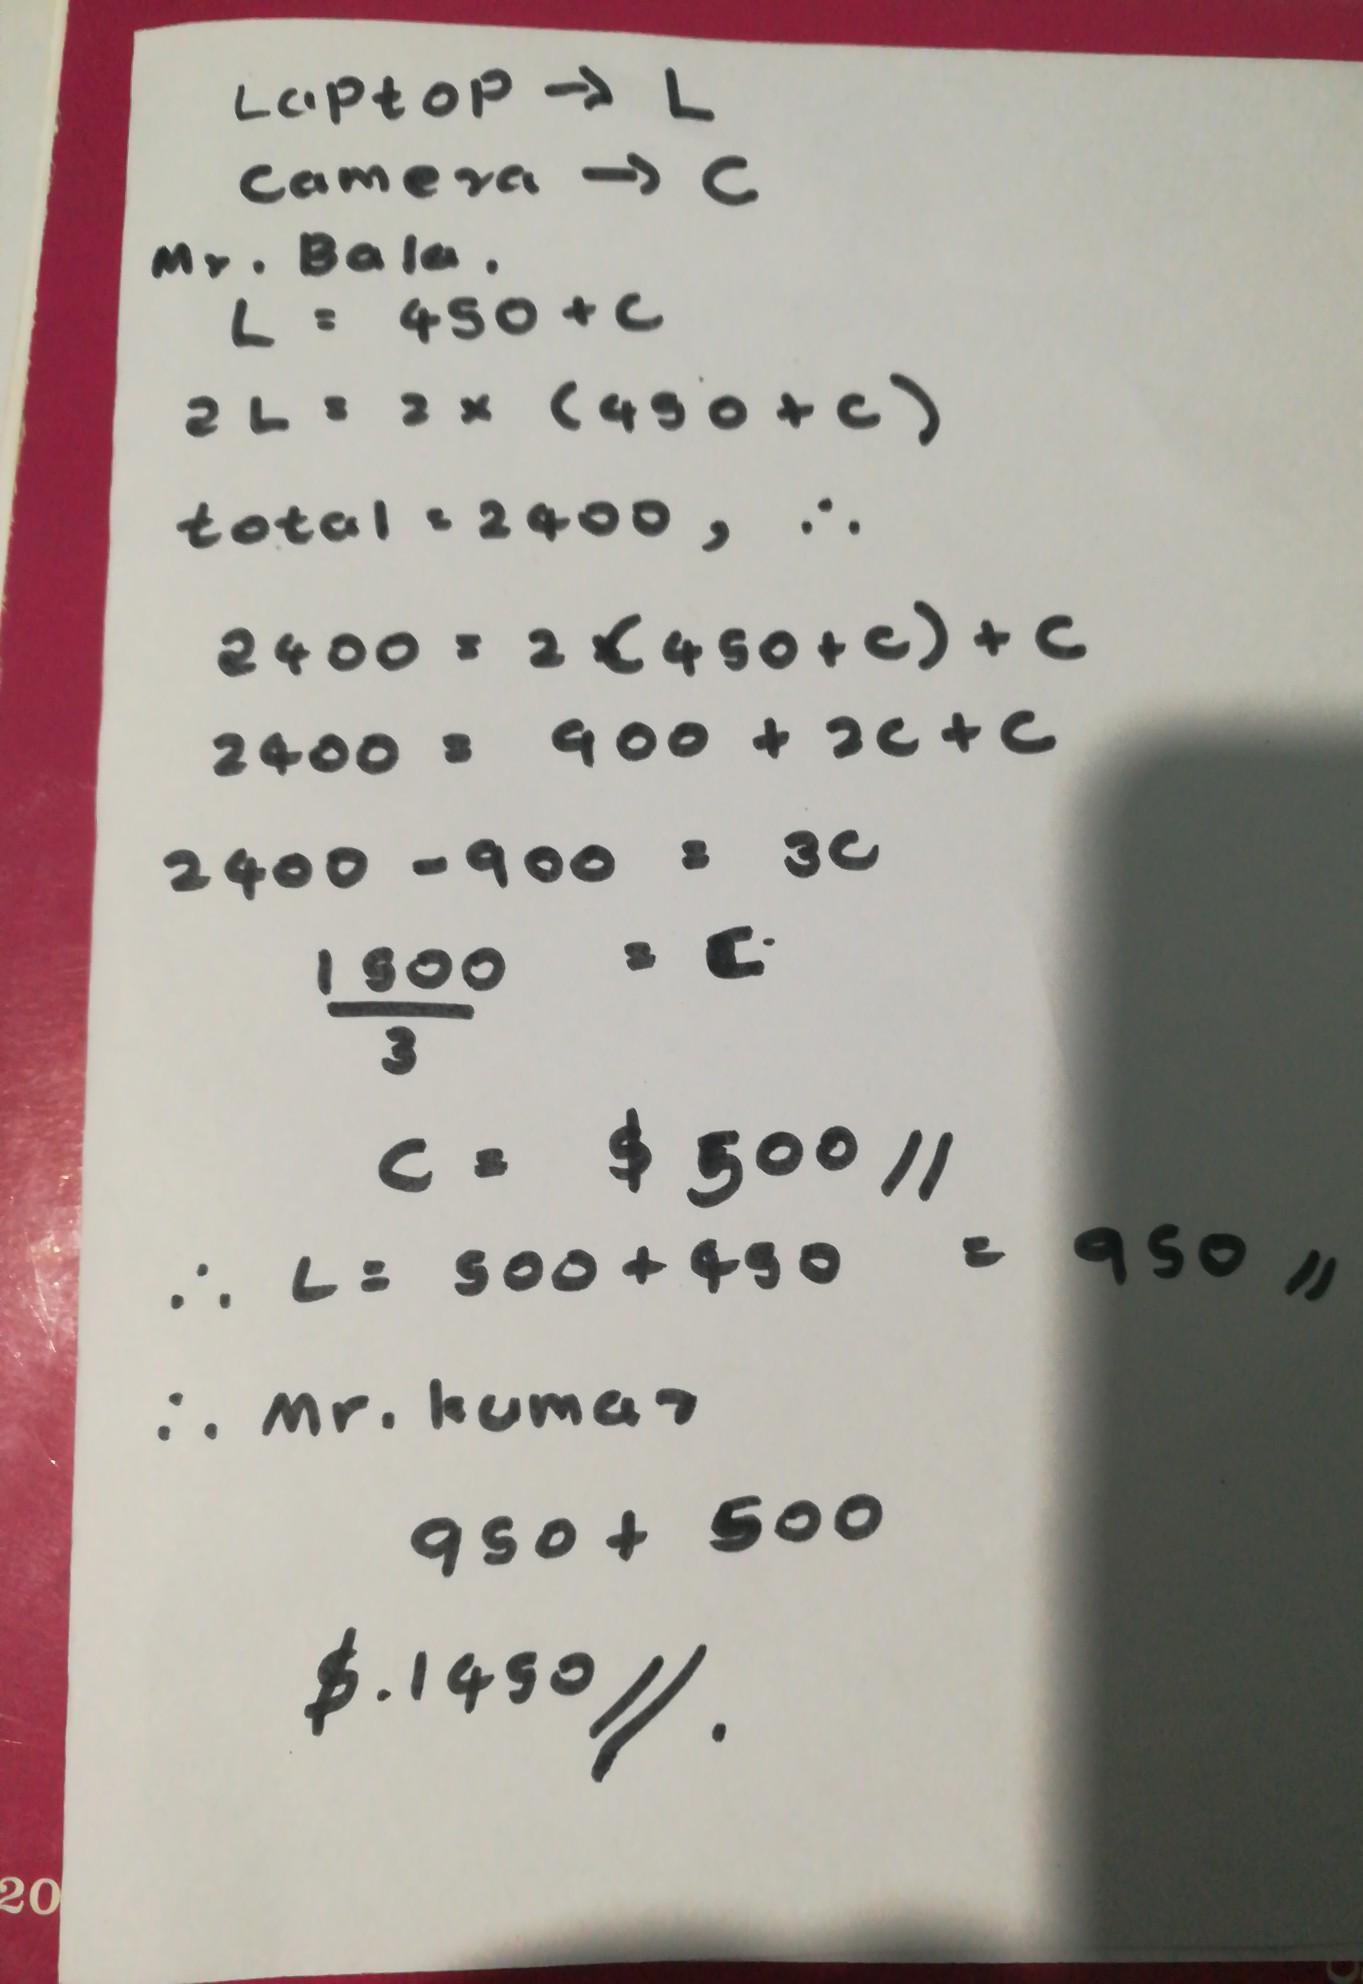 Laptop → L
Camera → C
Mr. Bala.
L = 450 + C
2L = 2 × (450 + C)
total = 2400, ∴
2400 = 2 × (450 + C) + C
2400 = 900 + 2C + C
2400 - 900 = 3C
1500 = C
3
C = $ 500 //
∴ L = 500 + 450 = 950 //
∴ Mr. Kumar
950 + 500
$. 1450 //.
20